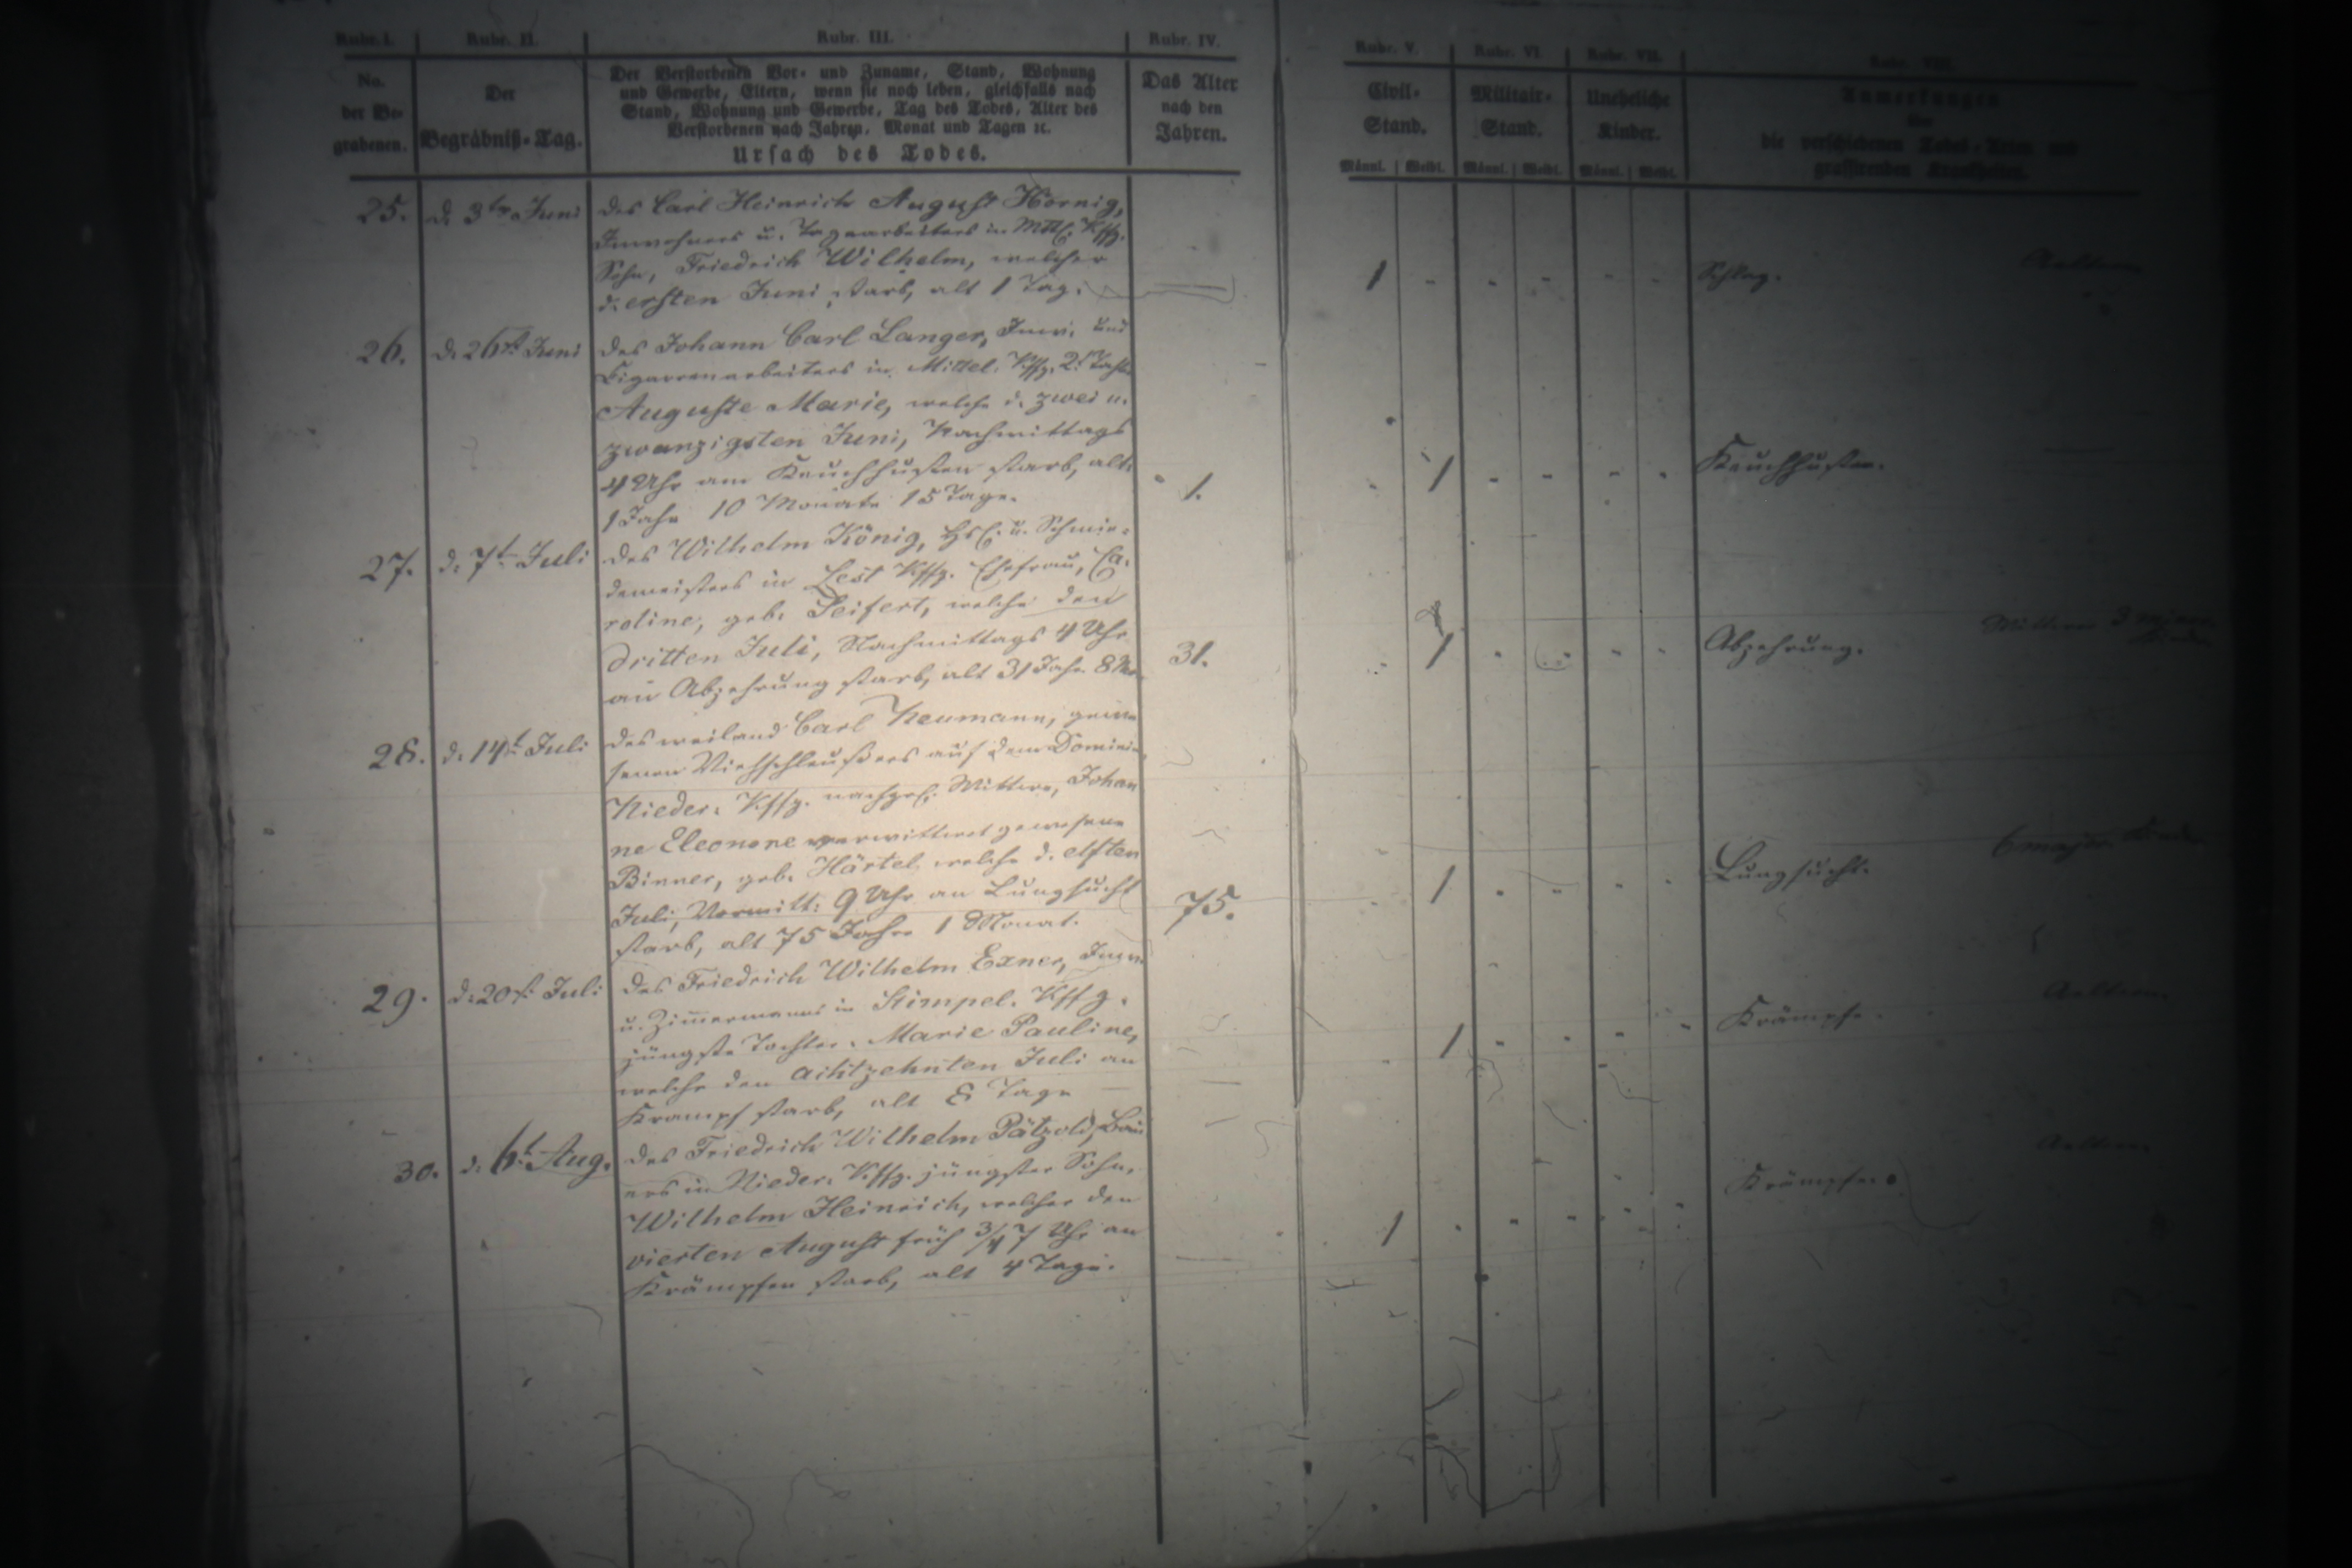 Rubr. I. Rubr. II. Rubr. III. Rubr. IV. Rubr. V. Rubr. VI. Rubr. VII. Rubr. VIII.
No. der Be- grabenen.
Der Begräbniß-Tag.
Der Verstorbenen Vor- und Zuname, Stand, Wohnung
und Gewerbe, Eltern, wenn sie noch leben, gleichfalls nach
Stand, Wohnung und Gewerbe, Tag des Todes, Alter des
Verstorbenen nach Jahren, Monat und Tagen ꝛc.
Ursach des Todes.
Das Alter
nach den
Jahren.
Civil-
Stand.
Militair-
Stand.
Uneheliche
Kinder.
Anmerkungen
über
die verschiedenen Todes-Arten und
grassirenden Krankheiten.
Männl. Weibl. Männl. Weibl. Männl. Weibl.
25. d. 3ten Juni
des Carl Heinrich August Hornig,
Inwohners u. Tagearbeiters in Mttl. Kffg.
Sohn, Friedrich Wilhelm, welcher
d. ersten Juni starb, alt 1 Tag.
1 - - - - - Schlag. Aeltern
26. d. 26st. Juni
des Johann Carl Langer, Inw. und
Cigarrenarbeiters in Mittel. Kffg. 2t. Tocht.
Auguste Marie, welche d. zwei u.
zwanzigsten Juni, Nachmittags
4 Uhr am Keuchhusten starb, alt
1 Jahr 10 Monate 15 Tage.
1. - 1 - - - - Keuchhusten.
27. d. 7t. Juli
des Wilhelm König, Hsl. u. Schmie-
demeisters in Kffg. Ehefrau, Ca-
roline, geb. Seifert, welche den
dritten Juli, Nachmittags 4 Uhr
an Abzehrung starb, alt 31 Jahr 8 Mo.
31. - 1 - - - - Abzehrung.
28. d. 14t. Juli
des weiland Carl Neumann, gewe
senen Viehschleußers auf dem Dominio
Nieder. Kffg. nachgel. Wittwe, Johan
ne Eleonore verwittwet gewesene
Binner, geb. Härtel, welche d. elften
Juli, Vormitt: 9 Uhr an Lungsucht
starb, alt 75 Jahre 1 Monat.
75. 1 - - - - Lungsucht. 6 major.
29. d. 20st. Juli
des Friedrich Wilhelm Exner, Inw.
u. Zimmermanns in Stimpel. Kffg.
jüngste Tochter. Marie Pauline,
welche den achtzehnten Juli an
Krampf starb, alt 8 Tage
- 1 - - - - Krämpfe. Aeltern.
30. d. 6t. Aug.
des Friedrich Wilhelm Pätzold, Bau
ers in Nieder. Kffg. jüngster Sohn,
Wilhelm Heinrich, welcher den
vierten August früh 3/4 7 Uhr an
Krämpfen starb, alt 4 Tage.
1 - - - - - Krämpfe. Aeltern.